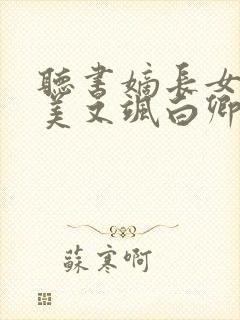 聽書嫡長女
美又颯白卿
蘇寒啊